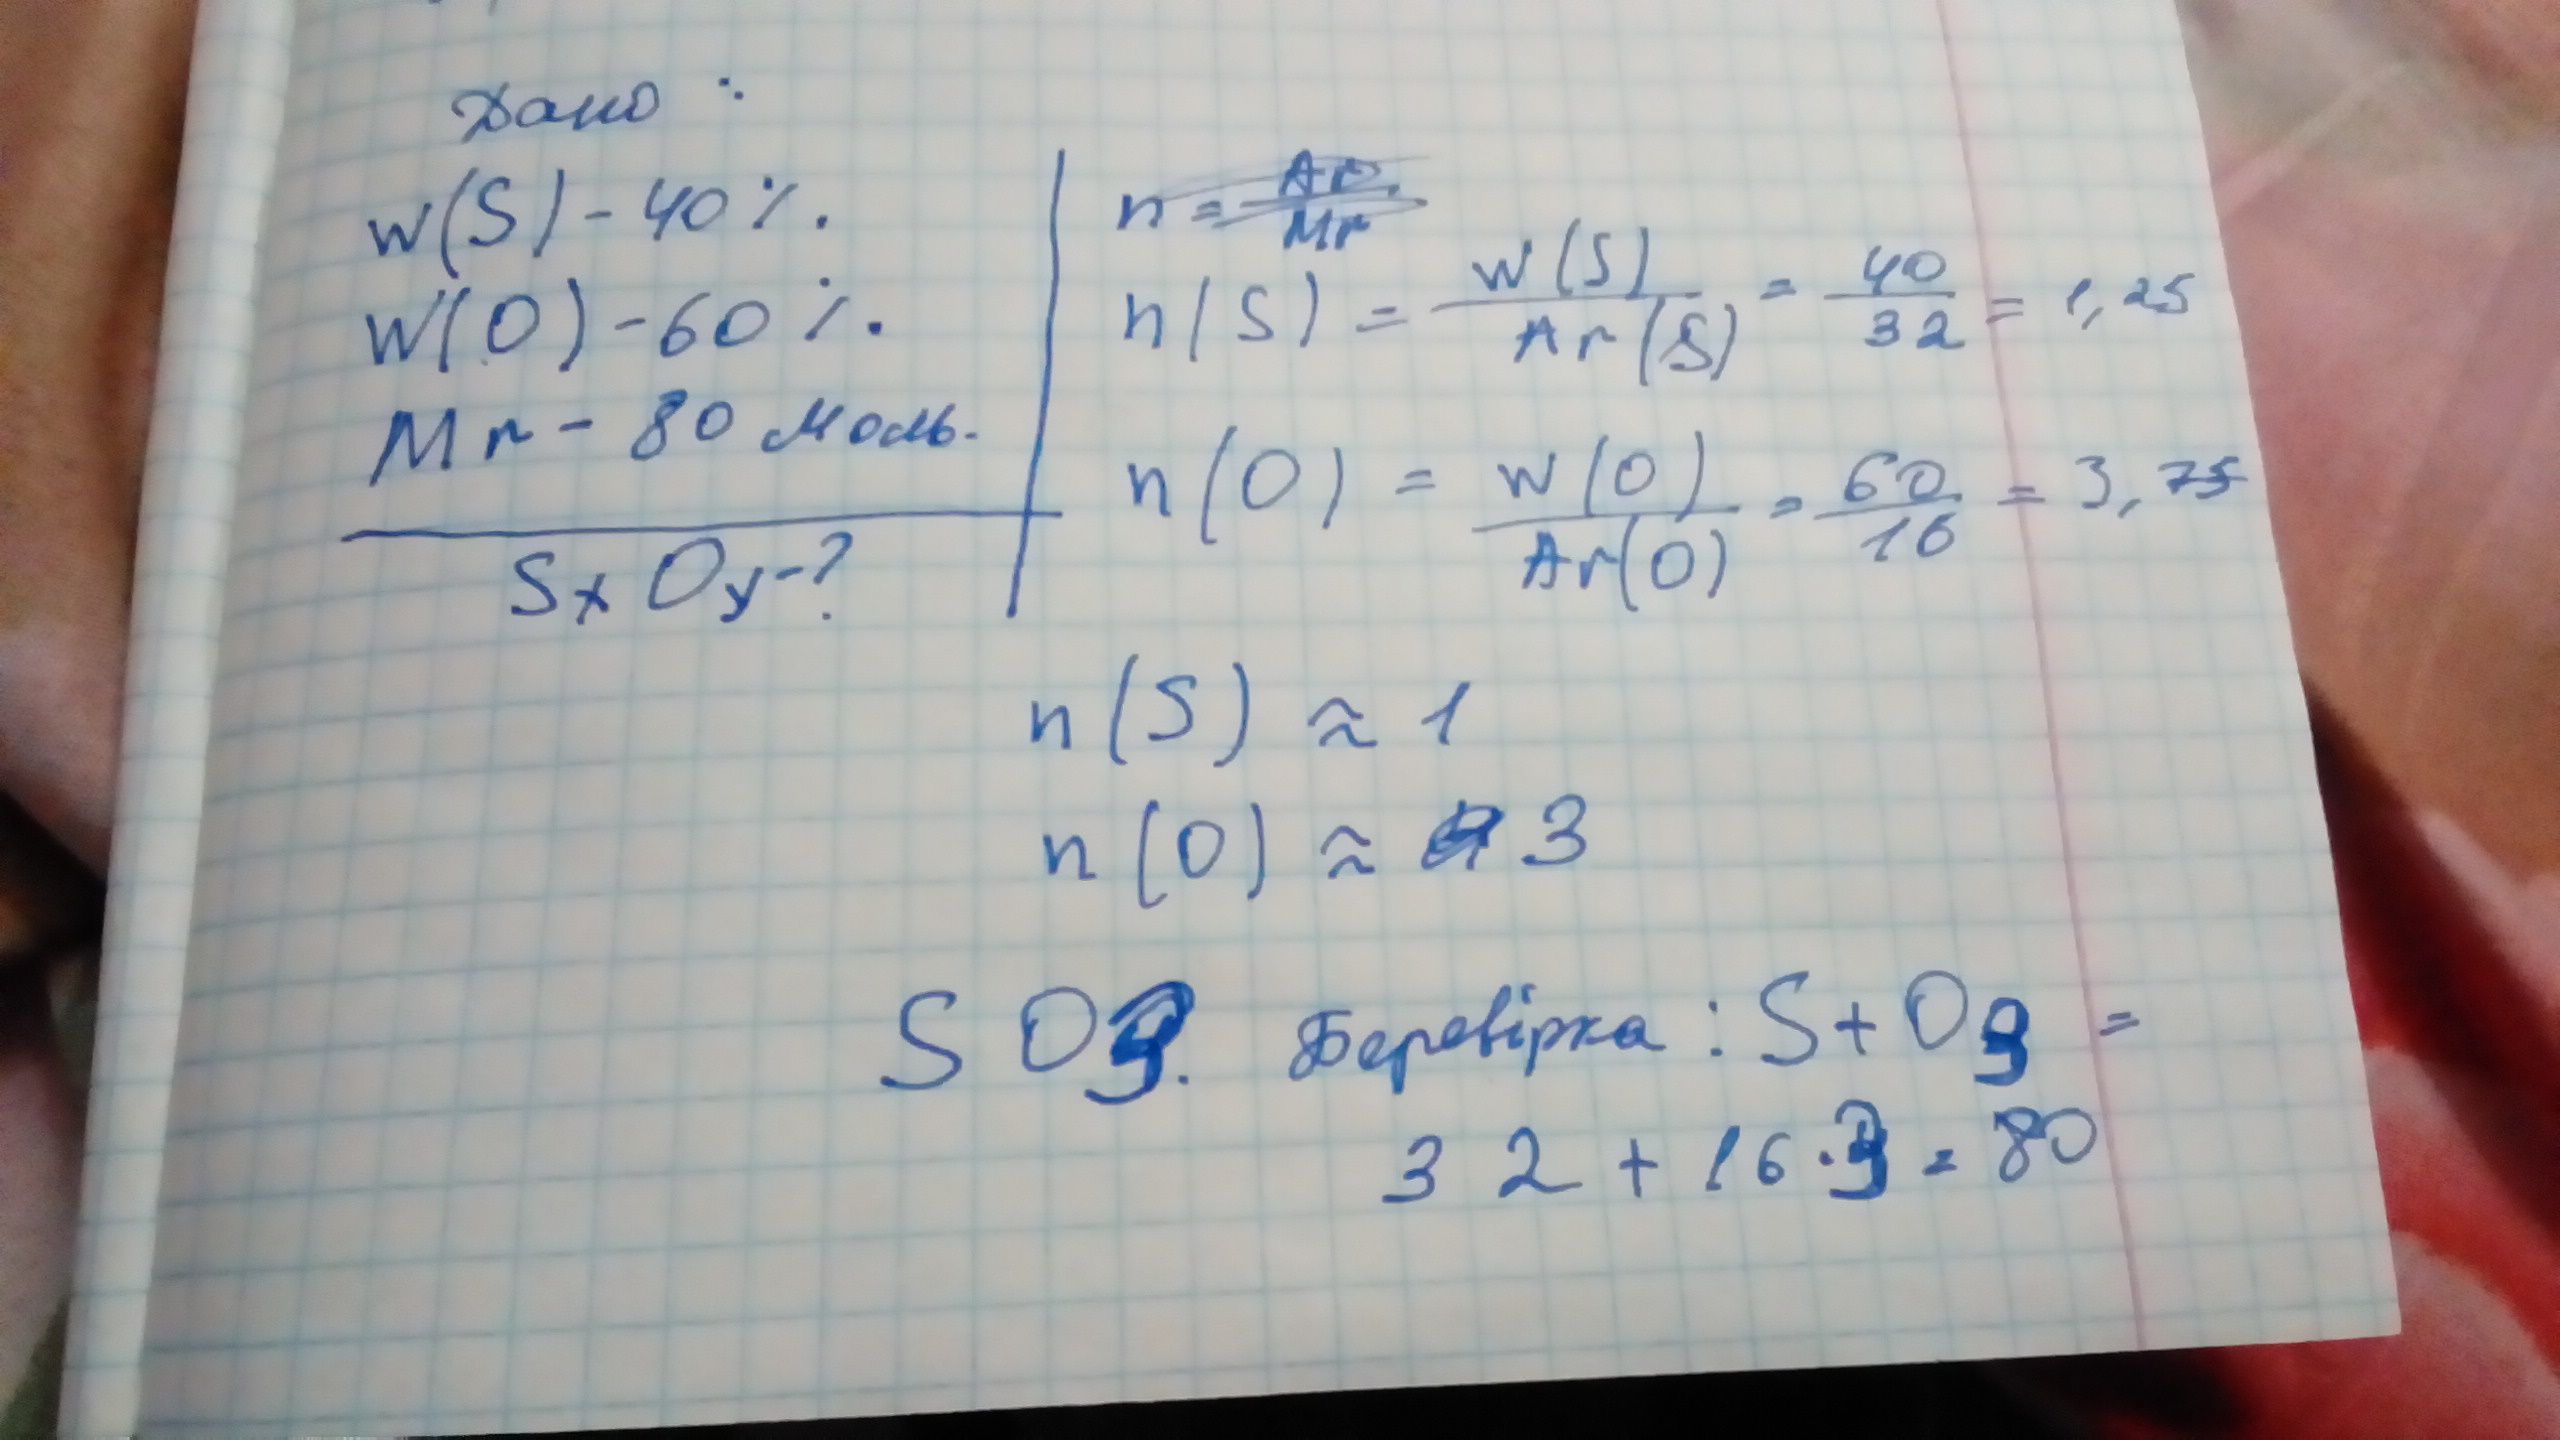 Дано :
w(S) - 40%.
w(O) - 60%.
Mr - 80 моль.
SxOy - ?
n = Ar/Mr
n(S) = w(S)/Ar(S) = 40/32 = 1,25
n(O) = w(O)/Ar(O) = 60/16 = 3,75
n(S) ≈ 1
n(O) ≈ 3
SO3. Перевірка : S + O3 =
32 + 16 · 3 = 80